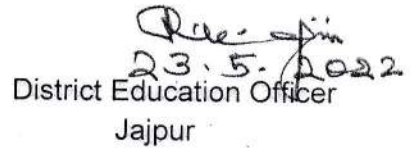 23.5.2022
District Education Officer
Jajpur